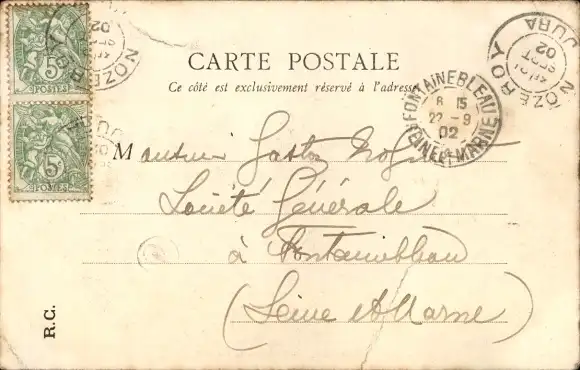 CARTE POSTALE
Ce côté est exclusivement réservé à l'adresse
5c
POSTES
5c
POSTES
NOZEROY
02
NOZEROY
JURA
SEPT
02
FONTAINEBLEAU
8 15
22-9
02
SEINE ET MARNE
Monsieur Gaston
Société Générale
à Fontainebleau
(Seine et Marne)
R.C.